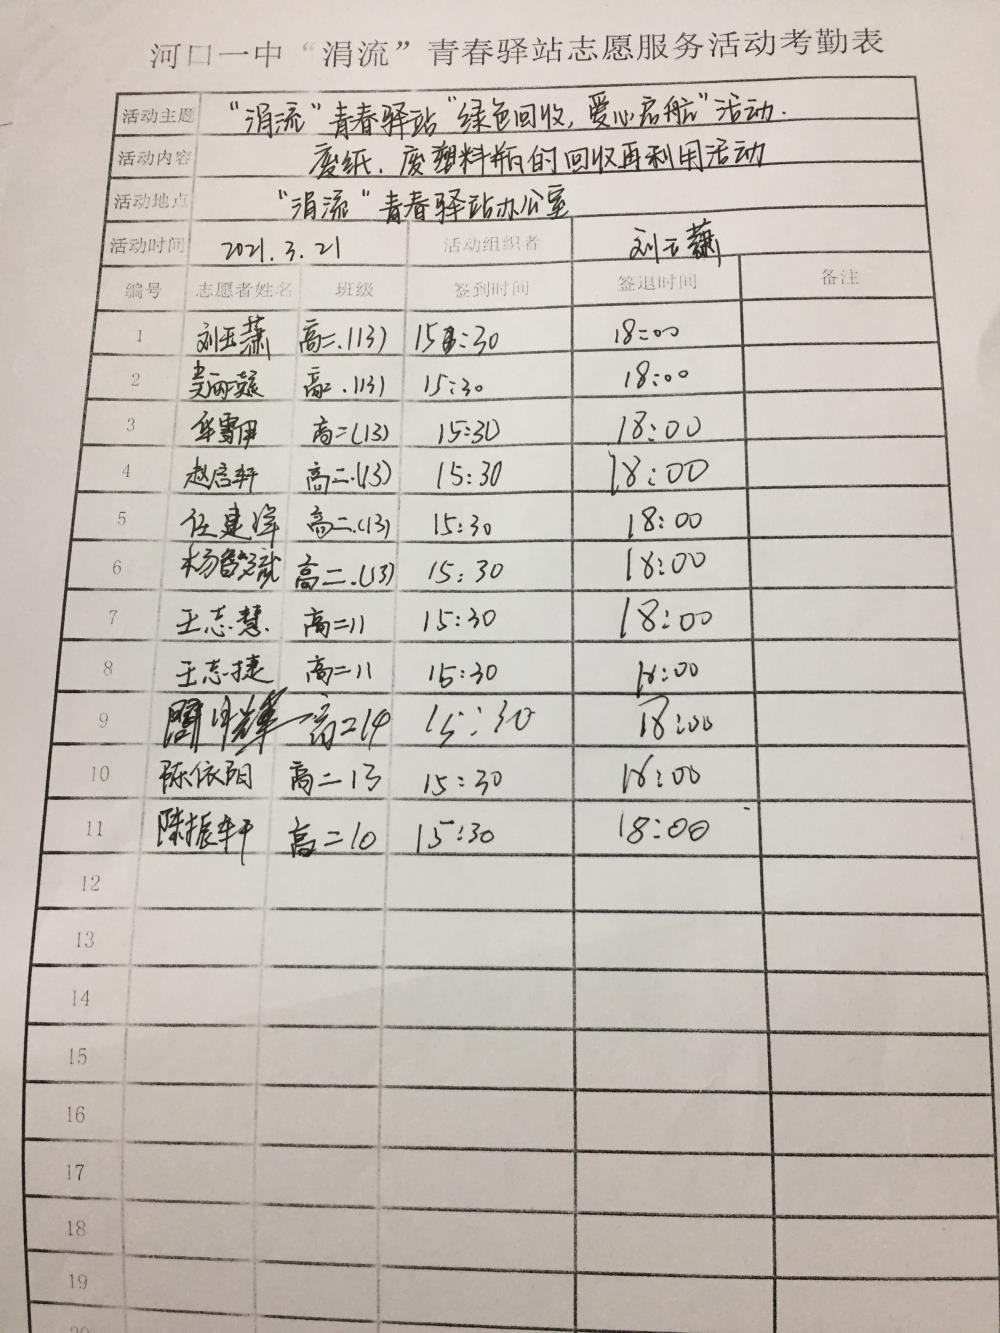 河口一中“涓流”青春驿站志愿服务活动考勤表
活动主题 “涓流”青春驿站“绿色回收,爱心启航”活动.
活动内容 废纸、废塑料瓶的回收再利用活动
活动地点 “涓流”青春驿站办公室
活动时间 2021.3.21 活动组织者 刘玉萧
编号 志愿者姓名 班级 签到时间 签退时间 备注
1 刘玉萧 高二.(13) 15:30 18:00
2 高二.(13) 15:30 18:00
3 华雪伊 高二(13) 15:30 18:00
4 赵启轩 高二.(13) 15:30 18:00
5 任建泽 高二.(13) 15:30 18:00
6 杨智斌 高二.(13) 15:30 18:00
7 王志慧 高二11 15:30 18:00
8 王志捷 高二11 15:30 18:00
9 高二14 15:30 18:00
10 陈依阳 高二13 15:30 18:00
11 陈振轩 高二10 15:30 18:00
12
13
14
15
16
17
18
19
20